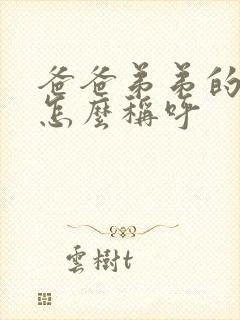 爸爸弟弟的
怎麼稱呼
雲樹t